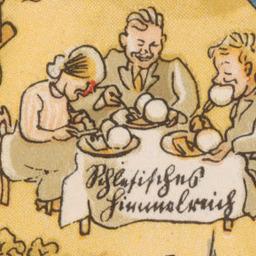 Schlesisches
Himmelreich